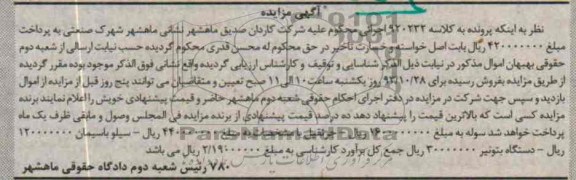 آگهی مزایده
نظر به اینکه پرونده به کلاسه ۹۲۰۲۳۲ اجرائی محکوم علیه شرکت کاردان صدیق ماهشهر نشانی ماهشهر شهرک صنعتی به پرداخت
مبلغ ۴۲۰۰۰۰۰۰۰ ریال بابت اصل خواسته و خسارت تأخیر در حق محکوم له محسن قدری محکوم گردیده حسب نیابت ارسالی از شعبه دوم
حقوقی بهبهان اموال مذکور در نیابت ذیل الذکر شناسایی و توقیف و کارشناس ارزیابی گردیده واقع نشانی فوق الذکر موجود بوده مقرر گردیده
از طریق مزایده بفروش رسیده برای ۹۳/۱۰/۲۸ روز یکشنبه ساعت ۱۰ الی ۱۱ صبح تعیین و متقاضیان می توانند پنج روز قبل از مزایده از اموال
بازدید و سپس جهت شرکت در مزایده در دفتر اجرای احکام حقوقی شعبه دوم ماهشهر حاضر و قیمت پیشنهادی خویش را اعلام نمایند برنده
مزایده کسی است که بالاترین قیمت را پیشنهاد دهد ده درصد قیمت پیشنهادی از برنده مزایده فی المجلس وصول و مابقی ظرف یک ماه
پرداخت خواهد شد سوله به مبلغ ریال – سیلو باسیمان ۱۲۰۰۰۰۰۰۰
ریال – دستگاه بتونیر ۳۰۰۰۰۰۰۰ ریال جمع کل برآورد کارشناسی به مبلغ ۲/۱۹۰۰۰۰۰۰۰ ریال می باشد
۷۸۰ رئیس شعبه دوم دادگاه حقوقی ماهشهر